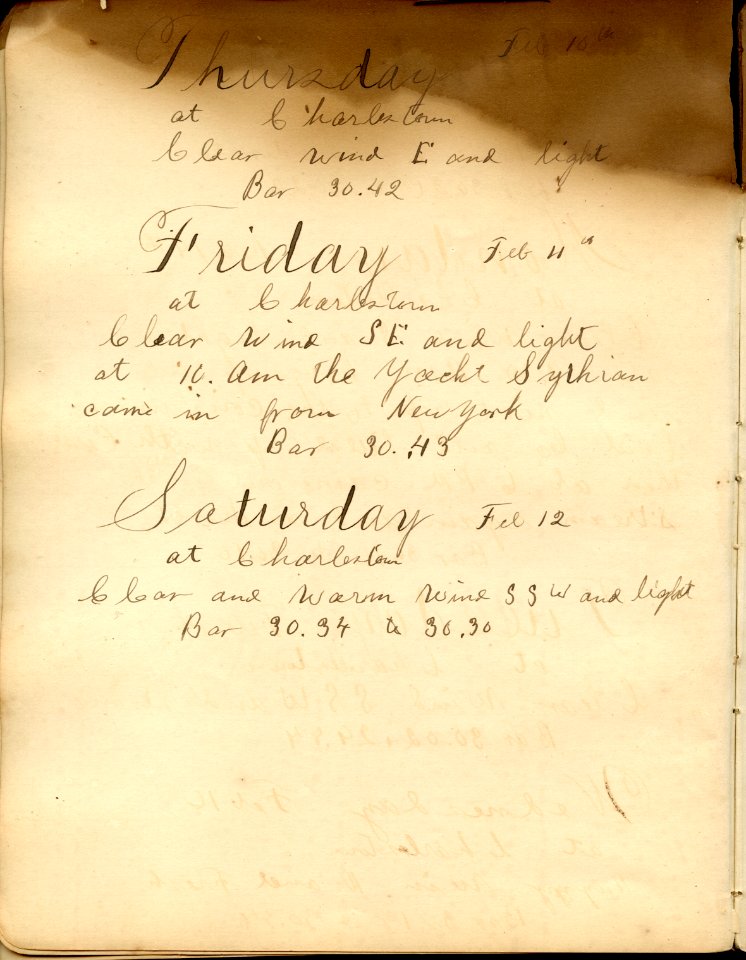 Thursday Feb 10th
at Charlestown
Clear wind E and light
Bar 30.42
Friday Feb 11th
at Charlestown
Clear wind SE and light
at 10. Am the Yacht Syrhian
came in from New York
Bar 30.43
Saturday Feb 12
at Charlestown
Clear and warm wind SSW and light
Bar 30.34 to 30.30